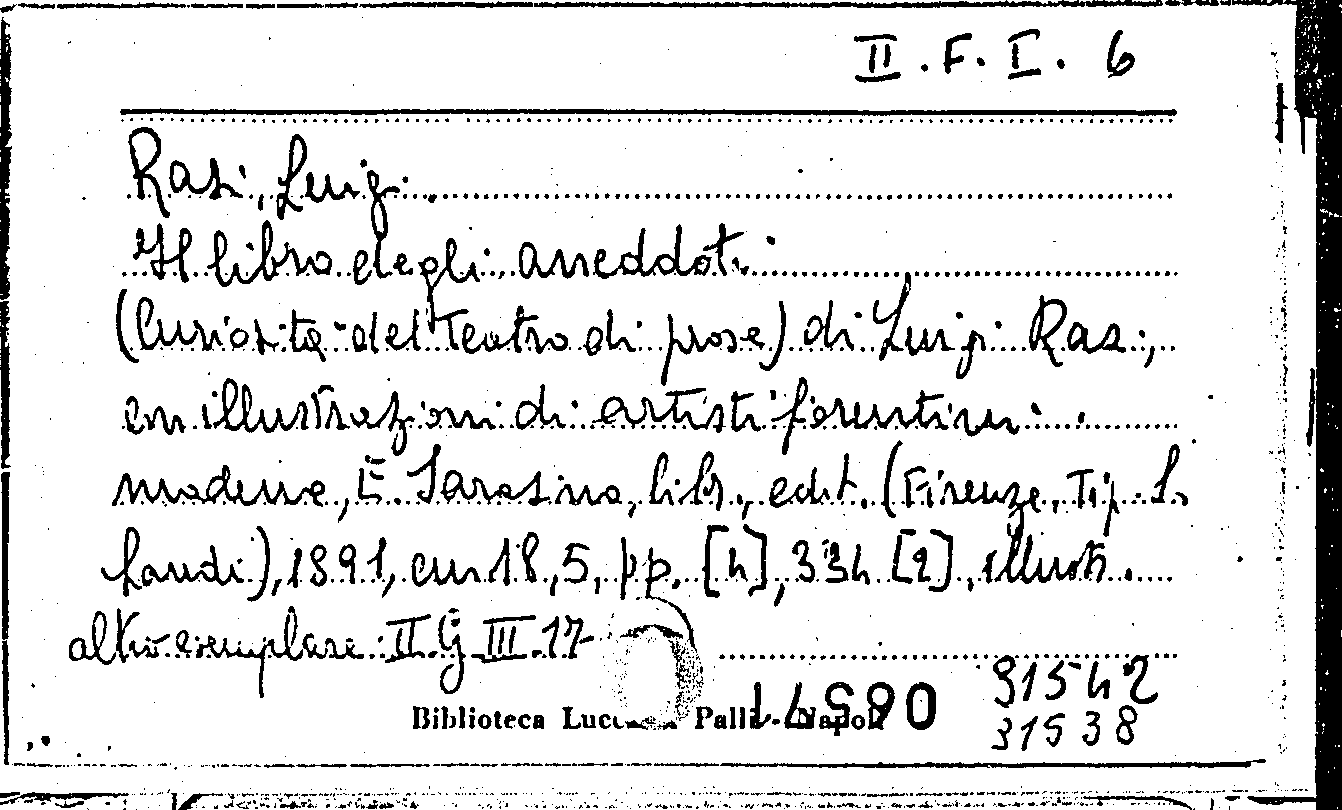 II.F.I. 6
Rasi, Luigi.
Il libro degli aneddoti
(Curiosità del Teatro di prosa) di Luigi Rasi,
con illustrazioni di artisti fiorentini.
moderna, E. Sarasino, libr. edit. (Firenze, Tip. S.
Landi), 1891, cm 18,5, pp. [4], 334 [2], illustr.
altro esemplare II G III 17
Biblioteca Napoli
31542
31538